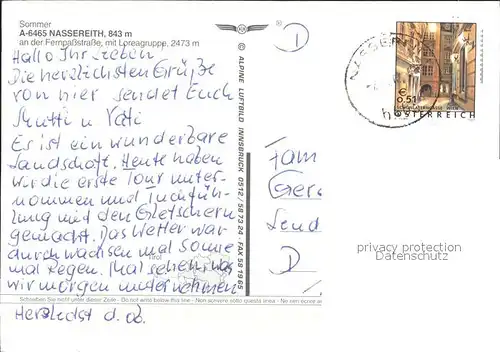 Sommer
A-6465 NASSEREITH, 843 m
an der Fernpaßstraße, mit Loreagruppe, 2473 m
Hallo Ihr Lieben
Die herzlichsten Grüße
von hier sendet Euch
Mutti u Vati
Es ist ein wunderbare
Landschaft. Heute haben
wir die erste Tour unter-
nommen und
mit den Gletschern
gemacht. Das Wetter war
durchwachsen mal Sonne
mal Regen. Mal sehen was
wir morgen unternehmen
Tirol
Schreiben Sie nicht unter dieser Zeile - Do not write below this line - Non scrivere sotto questa linea - Ne rien
Herzlichst d. o.
© ALPINE LUFTBILD INNSBRUCK 0512 / 58 73 24 - FAX 58 19 65
®
NASSEREI
€
0,51
ÖSTERREICH
Fam
Send
D
privacy protection
Datenschutz